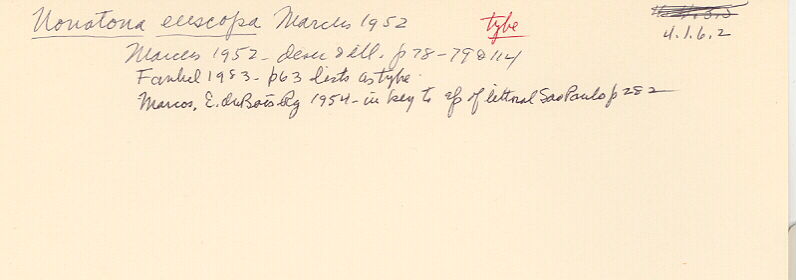 Nonatona euscopa Marcus 1952 type
4.1.6.2
Marcus 1952 - descr & ill. p 78-79 & 114
Faubel 1983 - p63 lists as type.
Marcus, E. duBois-Rg 1954 - in key to sp of littoral Sao Paulo p 282